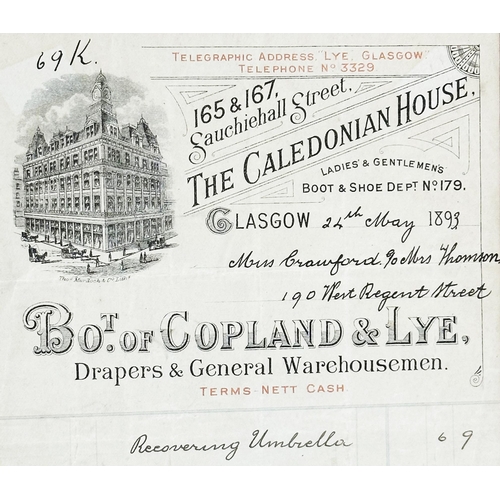 69 K.
TELEGRAPHIC ADDRESS, LYE, GLASGOW.
TELEPHONE Nº 3329
165 & 167,
Sauchiehall Street.
THE CALEDONIAN HOUSE,
LADIES' & GENTLEMEN'S
BOOT & SHOE DEPT Nº 179.
GLASGOW 24th May 1893
Miss Crawford c/o Mrs Thomson
190 West Regent Street
BOT. OF COPLAND & LYE,
Drapers & General Warehousemen.
TERMS NETT CASH
Recovering Umbrella 6 9